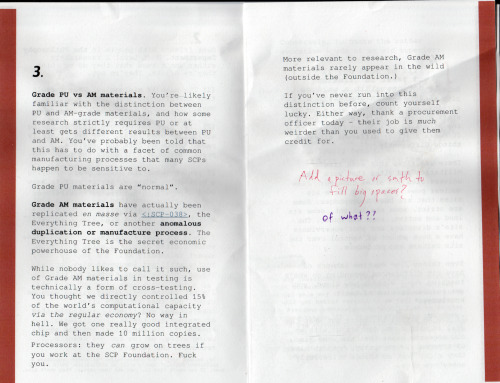 3.
Grade PU vs AM materials. You're likely
familiar with the distinction between
PU and AM-grade materials, and how some
research strictly requires PU or at
least gets different results between PU
and AM. You've probably been told that
this has to do with a facet of common
manufacturing processes that many SCPs
happen to be sensitive to.
Grade PU materials are "normal".
Grade AM materials have actually been
replicated en masse via <:SCP-038>, the
Everything Tree, or another anomalous
duplication or manufacture process. The
Everything Tree is the secret economic
powerhouse of the Foundation.
While nobody likes to call it such, use
of Grade AM materials in testing is
technically a form of cross-testing.
You thought we directly controlled 15%
of the world's computational capacity
via the regular economy? No way in
hell. We got one really good integrated
chip and then made 10 million copies.
Processors: they can grow on trees if
you work at the SCP Foundation. Fuck
you.
More relevant to research, Grade AM
materials rarely appear in the wild
(outside the Foundation.)
If you've never run into this
distinction before, count yourself
lucky. Either way, thank a procurement
officer today - their job is much
weirder than you used to give them
credit for.
Add a picture or smth to
fill big spaces?
of what?!